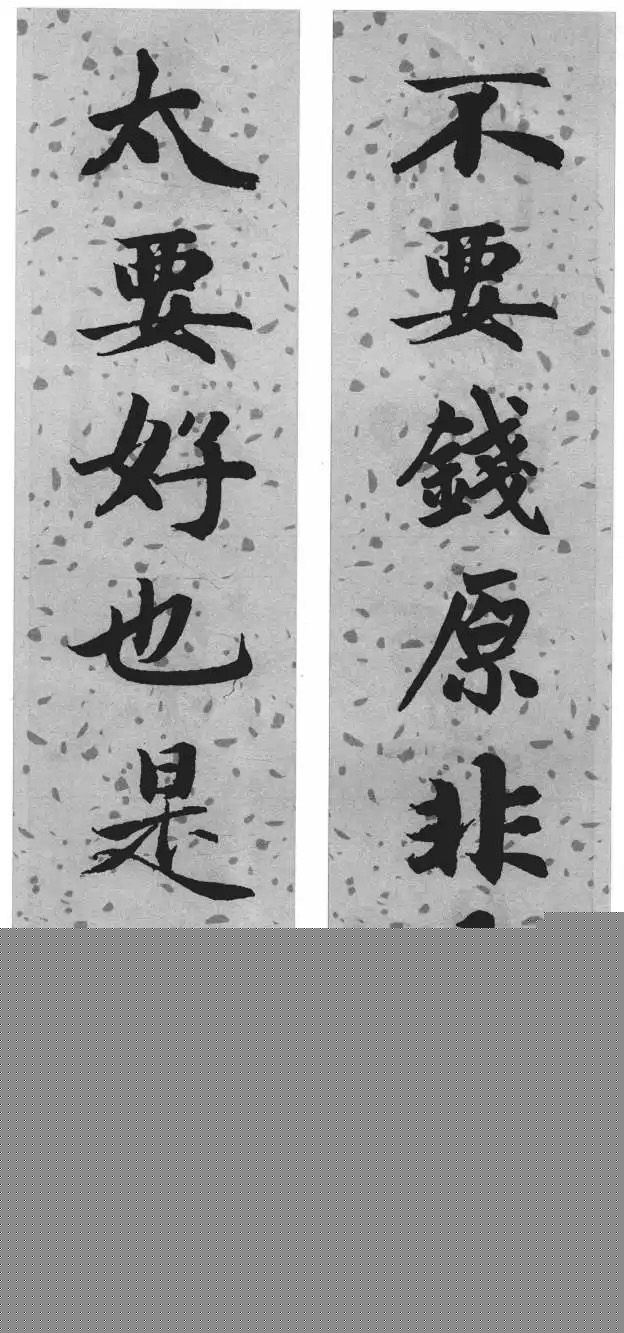 不要錢原非
太要好也是